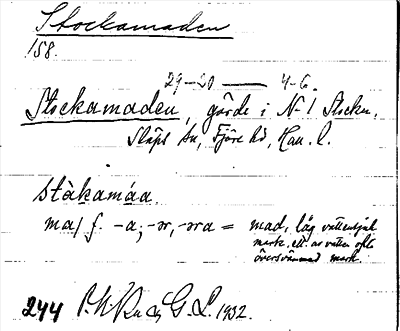 Stockamaden
158.
29–20 — 4–6.
Stockamaden, gärde i N:1 Stocken,
Släps sn, Fjäre hd, Hall. l.
stàkamáa
ma/ f. -a; -ər, -əra = mad, låg vattensjuk
mark, ell. av vatten ofta
översvämmad mark.
244 G. L. 1932.